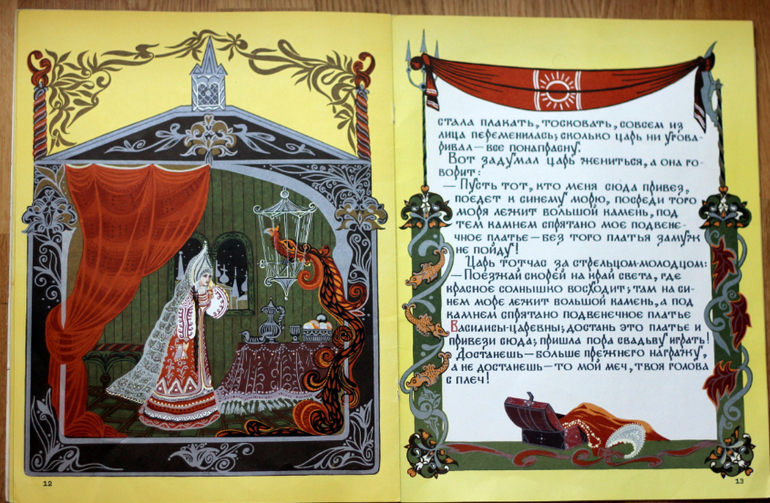 стала плакать, тосковать, совсем из
лица переменилась; сколько царь ни угова-
ривал — все понапрасну.
Вот задумал царь жениться, а она го-
ворит:
— Пусть тот, кто меня сюда привез,
поедет к синему морю, посреди того
моря лежит большой камень, под
тем камнем спрятано мое подвене-
чное платье — без того платья замуж
не пойду!
Царь тотчас за стрельцом-молодцом:
— Поезжай скорей на край света, где
красное солнышко восходит; там на си-
нем море лежит большой камень, а под
камнем спрятано подвенечное платье
Василисы-царевны; достань это платье и
привези сюда; пришла пора свадьбу играть!
Достанешь — больше прежнего награжу,
а не достанешь — то мой меч, твоя голова
с плеч!
12
13